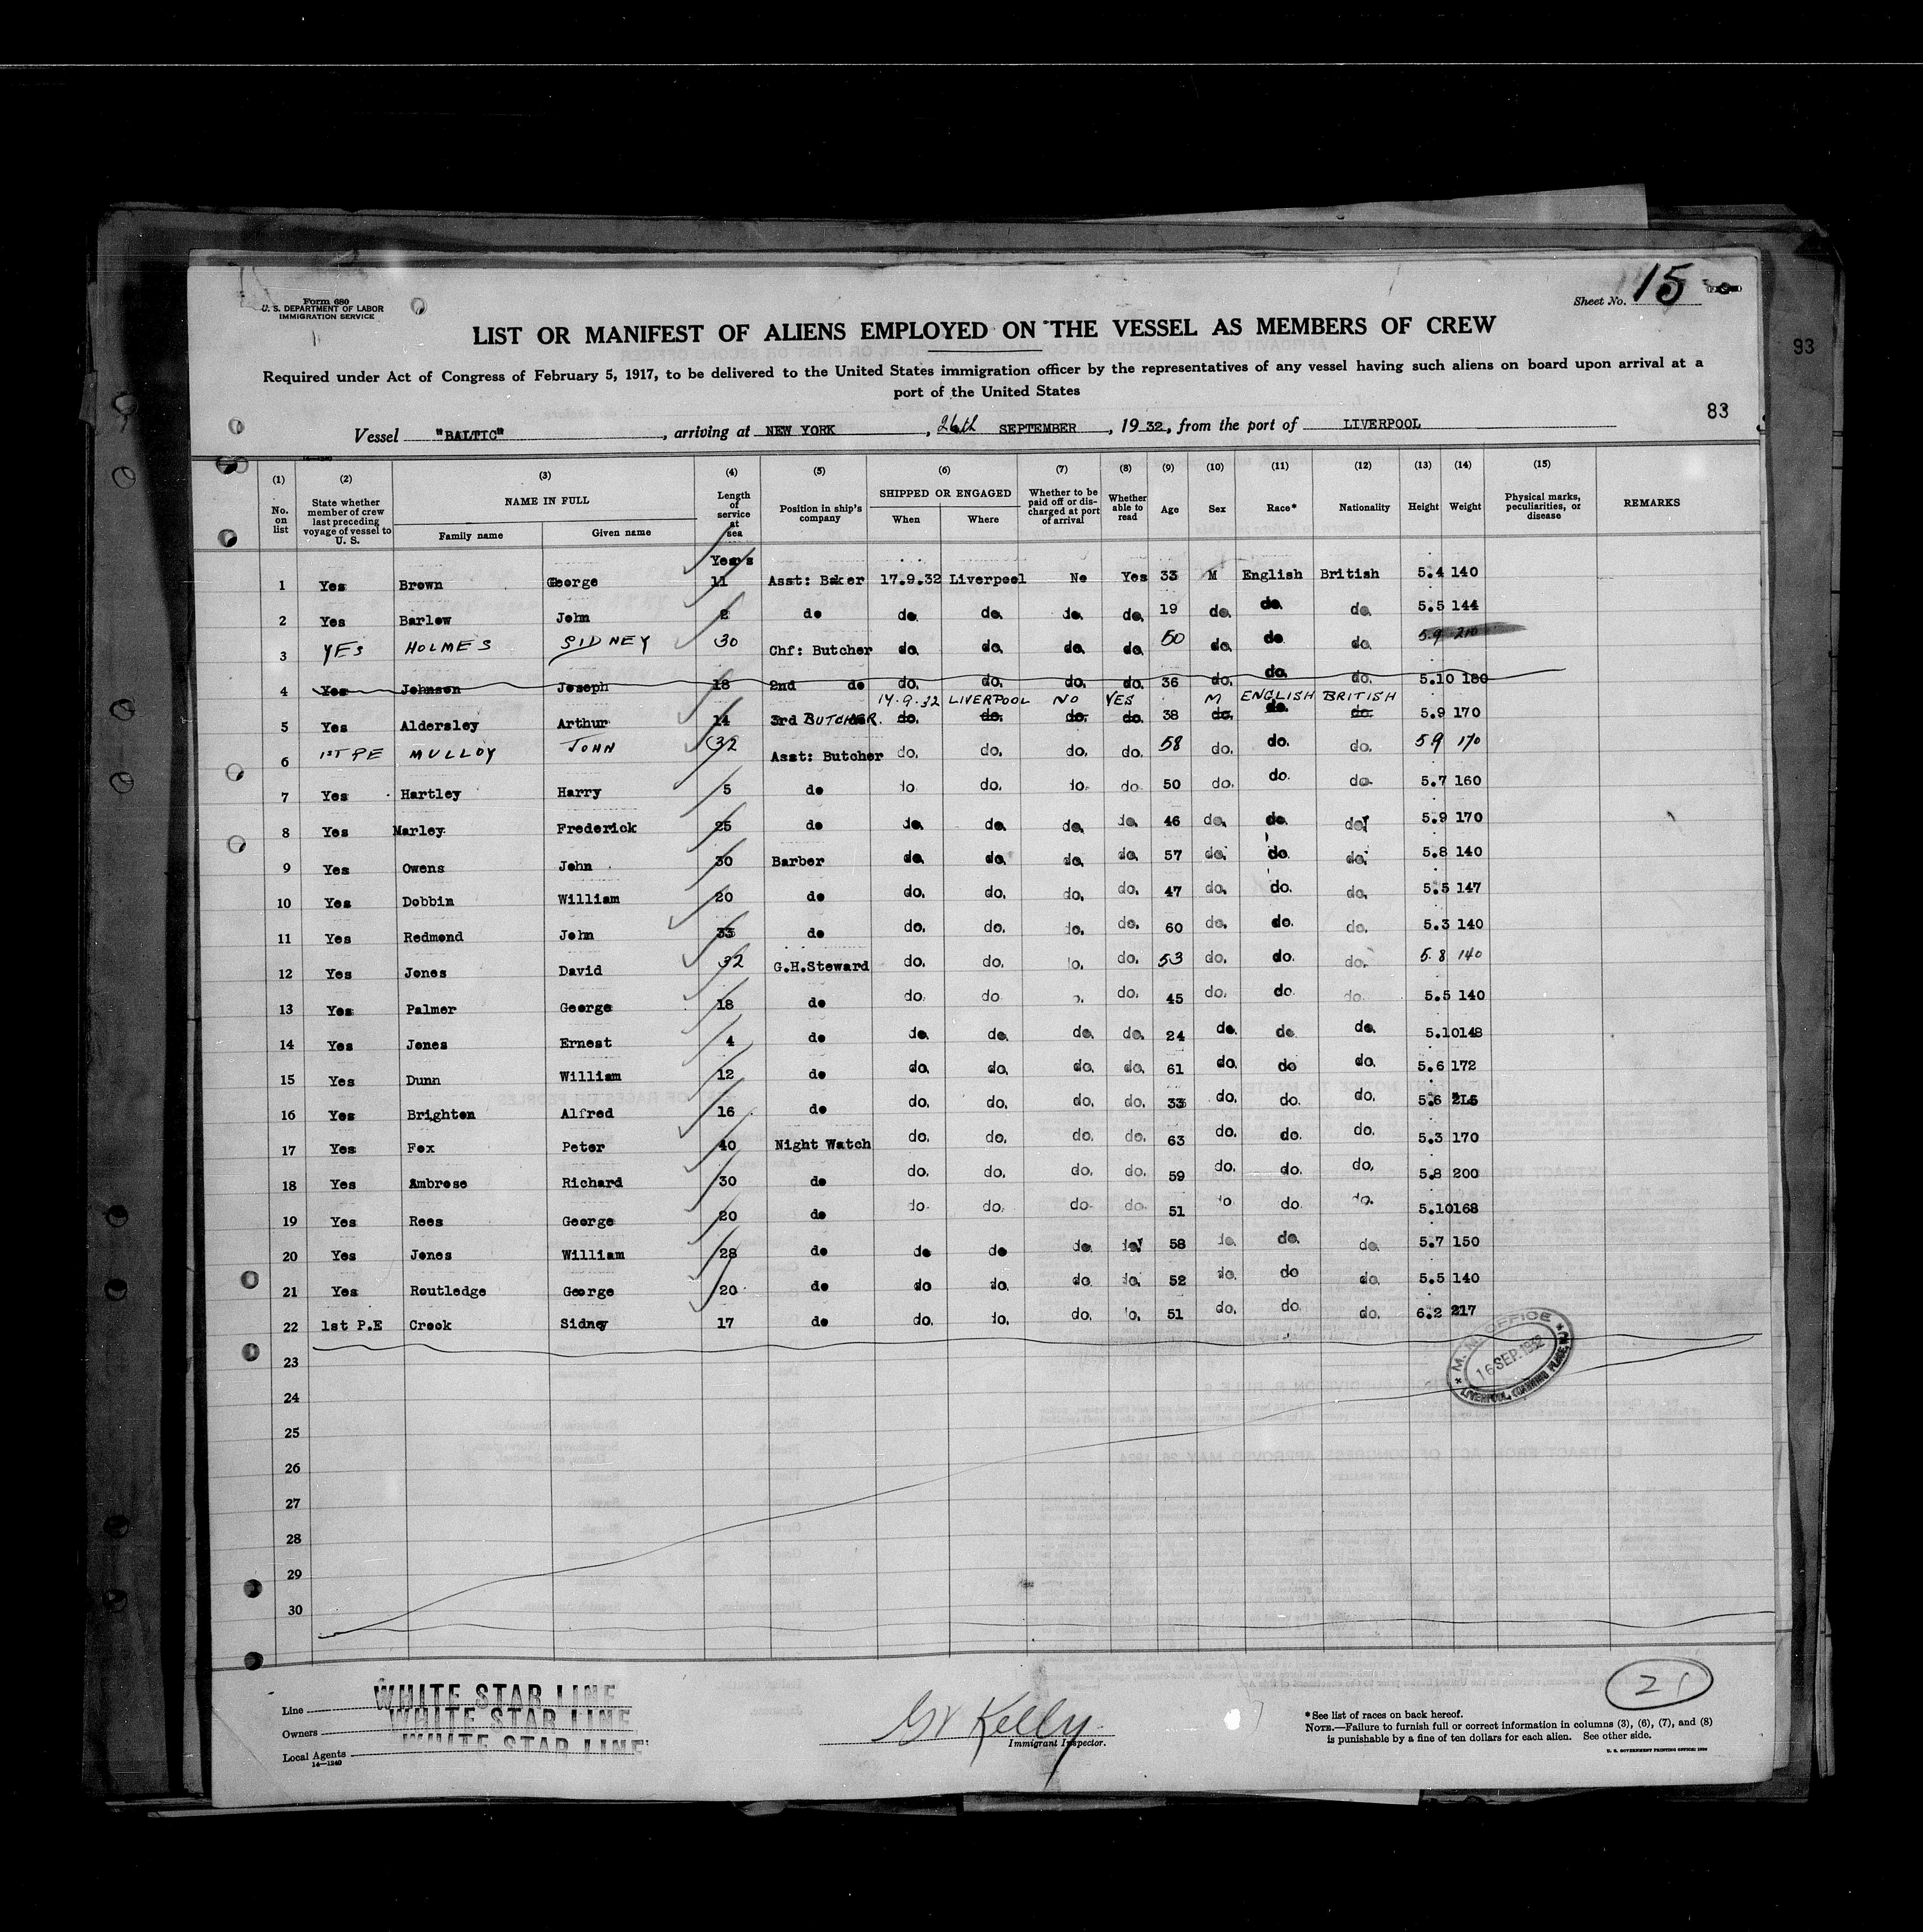 Form 680
U. S. DEPARTMENT OF LABOR
IMMIGRATION SERVICE
Sheet No. 15
LIST OR MANIFEST OF ALIENS EMPLOYED ON THE VESSEL AS MEMBERS OF CREW
93
Required under Act of Congress of February 5, 1917, to be delivered to the United States immigration officer by the representatives of any vessel having such aliens on board upon arrival at a
port of the United States
83
Vessel "BALTIC", arriving at NEW YORK, 26th SEPTEMBER, 1932, from the port of LIVERPOOL
(1) (2) (3) (4) (5) (6) (7) (8) (9) (10) (11) (12) (13) (14) (15)
No. on list State whether member of crew last preceding voyage of vessel to U. S. NAME IN FULL Family name Given name Length of service at sea Position in ship's company SHIPPED OR ENGAGED When Where Whether to be paid off or discharged at port of arrival Whether able to read Age Sex Race* Nationality Height Weight Physical marks, peculiarities, or disease REMARKS
Years
1 Yes Brown George 11 Asst: Baker 17.9.32 Liverpool No Yes 33 M English British 5.4 140
2 Yes Barlow John 2 do do. do. do. do. 19 do. do. do. 5.5 144
3 YES HOLMES SIDNEY 30 Chf: Butcher do. do. do. do. 50 do. do. do. 5.9 210
4 Yes Johnson Joseph 18 2nd do do. do. do. do. 36 do. do. do. 5.10 180
14.9.32 LIVERPOOL NO YES M ENGLISH BRITISH
5 Yes Aldersley Arthur 14 3rd BUTCHER do. do. do. do. 38 do. do. do. 5.9 170
6 1ST PE MULLOY JOHN 32 Asst: Butcher do. do. do. do. 58 do. do. do. 5 9 170
7 Yes Hartley Harry 5 do do. do. do. do. 50 do. do. do. 5.7 160
8 Yes Marley Frederick 25 do do. do. do. do. 46 do. do. do. 5.9 170
9 Yes Owens John 30 Barber do. do. do. do. 57 do. do. do. 5.8 140
10 Yes Dobbin William 20 do do. do. do. do. 47 do. do. do. 5.5 147
11 Yes Redmond John 33 do do. do. do. do. 60 do. do. do. 5.3 140
12 Yes Jones David 32 G.H.Steward do. do. do. do. 53 do. do. do. 5.8 140
13 Yes Palmer George 18 do do. do do. do. 45 do. do. do. 5.5 140
14 Yes Jones Ernest 4 do do. do. do. do. 24 do. do. do. 5.10 148
15 Yes Dunn William 12 do do. do. do. do. 61 do. do do. 5.6 172
16 Yes Brighton Alfred 16 do do. do. do. do. 33 do. do. do. 5.6 215
17 Yes Fox Peter 40 Night Watch do. do. do. do. 63 do. do. do. 5.3 170
18 Yes Ambrose Richard 30 do do. do. do. do. 59 do. do. do. 5.8 200
19 Yes Rees George 20 do do. do. do. do. 51 do do. do. 5.10 168
20 Yes Jones William 28 do do do do. do. 58 do. do. do. 5.7 150
21 Yes Routledge George 20 do do do. do. do. 52 do. do do. 5.5 140
22 1st P.E Crook Sidney 17 do do. do. do. do. 51 do. do. do. 6.2 217
23
24
25
26
27
28
29
30
M. M. OFFICE
16 SEP. 1932
21
Line WHITE STAR LINE
Owners WHITE STAR LINE
Local Agents WHITE STAR LINE
14—1240
Kelly
Immigrant Inspector.
*See list of races on back hereof.
NOTE.—Failure to furnish full or correct information in columns (3), (6), (7), and (8)
is punishable by a fine of ten dollars for each alien. See other side.